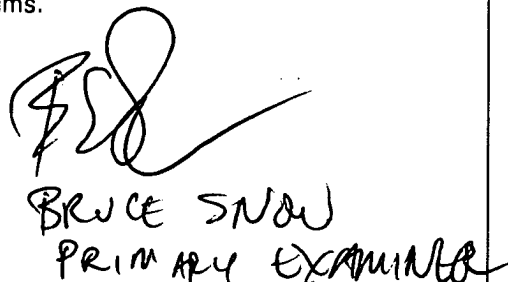 ms.
BRUCE SNOW
PRIMARY EXAMINER